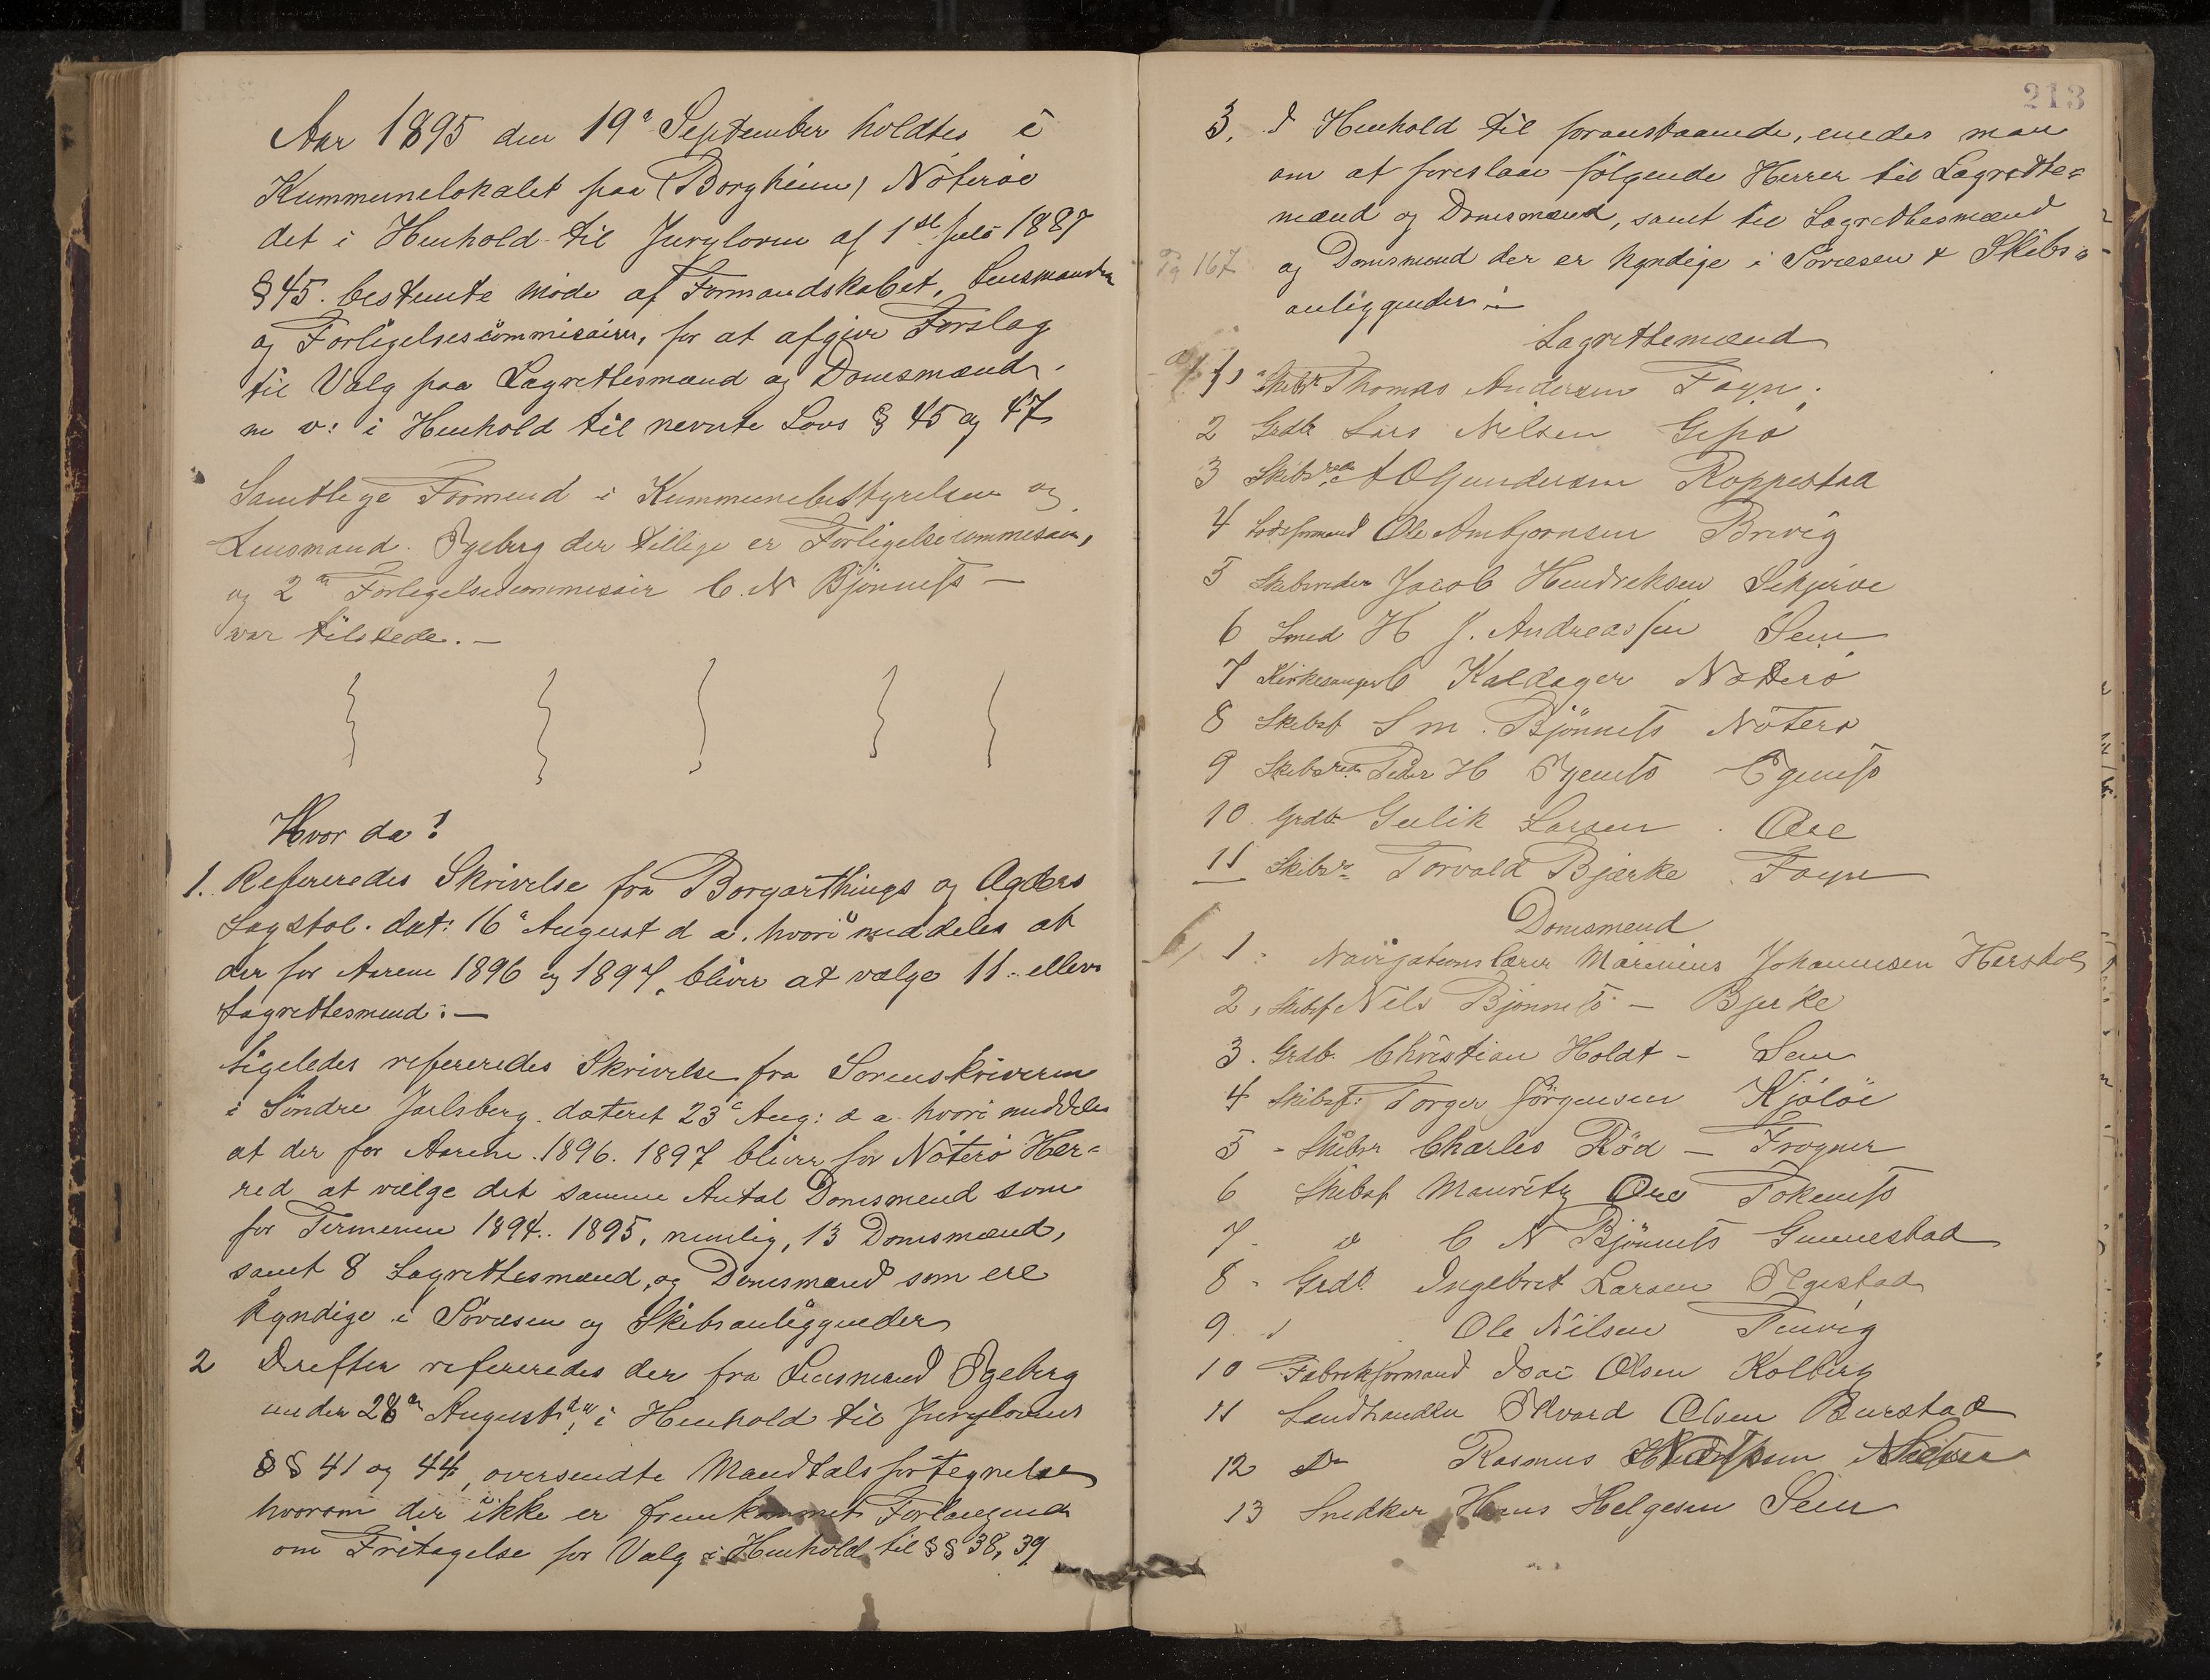 Aar 1895 den 19de September holdtes i
Kummunelokalet paa (Borgheim) Nøterøe
det i Henhold til Jurylovne af 1ste Juli 1887
§ 45. bestemte møde af Formandskabet, Lensmanden
og Forligelsescommisairer, for at afgive Forslag
til Valg paa Lagrettesmænd og Domsmænd.
m v: i Henhold til nevnte Lovs § 45 og 47
Samtlige Formend i Kummunebestyrelsen og
Lensmand. Ygeberg der tillige er Forligelsecommisair,
og 2den Forligelsescommisair C. N Bjønness —
var tilstede. —
Hvor da!
1. Refereredes Skrivelse fra Borgarthings og Agders
Lagstol. dat: 16de August d a. hvori meddeles at
der for Aarene 1896 og 1897, bliver at vælge 11. elleve
Lagrettesmend: —
Ligeledes refereredes Skrivelse fra Sorenskriveren
i Søndre Jarlsberg. dateret 23de Aug: d a hvori meddeles
at der for Aarene. 1896. 1897 bliver for Nøterø Her=
red at vælge det samme Antal Domsmend som
for Terminen 1894.. 1895, nemlig, 13 Domsmænd,
samt 8 Lagrettesmænd, og Domsmænd som ere
kyndige i Søvæsen og Skibsanliggender
2 Derefter refereredes der fra Lensmand Ygeberg
under 28de August d a, i Henhold til Jurylovens
§§ 41 og 44, oversendte Mandtalsfortegnelse
hvorom der ikke er fremkommet Forlangende
om Fritagelse for Valg i Henhold til §§ 38, 39
213
3. I Henhold til foranstaaende, enedes man
om at foreslaae følgende Herrer til Lagrette=
mænd og Domsmænd, samt til Lagrettesmænd
Pg 167 og Domsmænd der er kyndige i Søvæsen & Skibs=
anliggender:
Lagrettemænd
a, 1, Skibsr Thomas Andersen Føyn.
2 Grdb Lars Nilsen Gipø
3 Skibsred A O Gundersen Roppestad
4 Lodsformand Ole Ambjørnsen Brevig
5 Skibsreder Jacob Hendriksen Skjerve
6 Smed H J. Andreassen Sem
7 Kirkesanger C Kaldager Nøtterø
8 Skibsf S m. Bjønness Nøterø
9 Skibsred. Peder H Ygenes Ygenes
10. Grdb. Gulik Larsen. Øre
11 Skibsr Torvald Bjerke Føyn
Domsmend
b, 1. Navigationslærer Marenius Johannesen Herstol
2, Skibsf Nils Bjønness — Bjerke
3. Grdb. Christian Holdt — Sem
4 Skibsf. Torger Jørgensen Kjøløe
5 - Skibsr Charles Rød — Trogner
6 Skibsf Mauritz Øre Tokenes
7. d C N Bjønness Gunnestad
8 - Grdb. Ingebret Larsen Ølgestad
9. d Ole Nilsen Tenvig
10 Fabrikformand Isac Olsen Kolberg
11 Landhandler Edvard Olsen Burstad
12 Do Rasmus
13 Snedker Hans Helgesen Sem